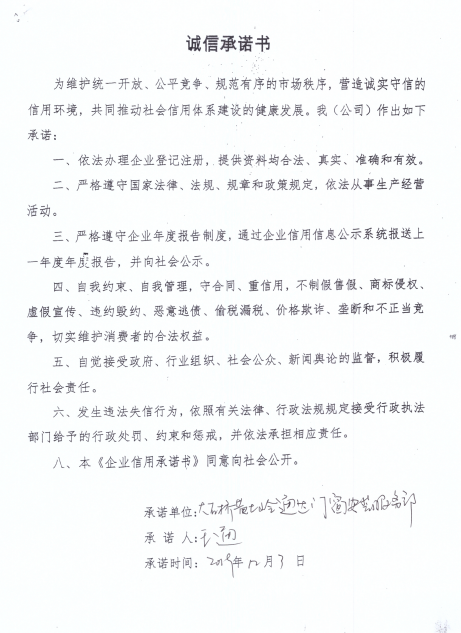 诚信承诺书
为维护统一开放、公平竞争、规范有序的市场秩序，营造诚实守信的
信用环境，共同推动社会信用体系建设的健康发展。我（公司）作出如下
承诺：
一、依法办理企业登记注册，提供资料均合法、真实、准确和有效。
二、严格遵守国家法律、法规、规章和政策规定，依法从事生产经营
活动。
三、严格遵守企业年度报告制度，通过企业信用信息公示系统报送上
一年度年度报告，并向社会公示。
四、自我约束、自我管理，守合同、重信用，不制假售假、商标侵权、
虚假宣传、违约毁约、恶意逃债、偷税漏税、价格欺诈、垄断和不正当竞
争，切实维护消费者的合法权益。
五、自觉接受政府、行业组织、社会公众、新闻舆论的监督，积极履
行社会责任。
六、发生违法失信行为，依照有关法律、行政法规规定接受行政执法
部门给予的行政处罚、约束和惩戒，并依法承担相应责任。
八、本《企业信用承诺书》同意向社会公开。
承诺单位：大石桥 通达门窗安装服务部
承 诺 人：王
承诺时间： 年12月3日